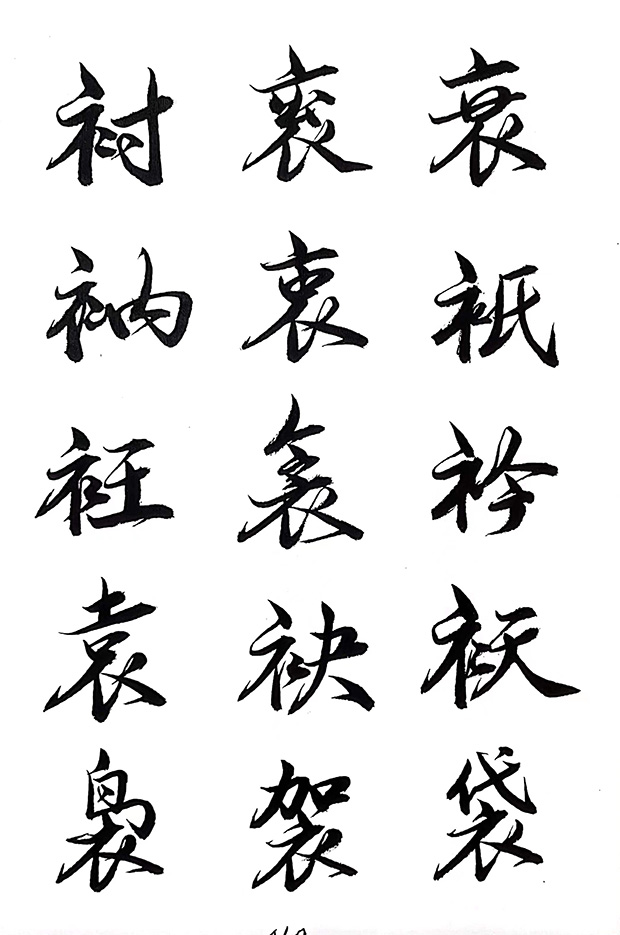 衬衮衰
衲衷衹
衽衾衿
袁袂袄
袅袈袋